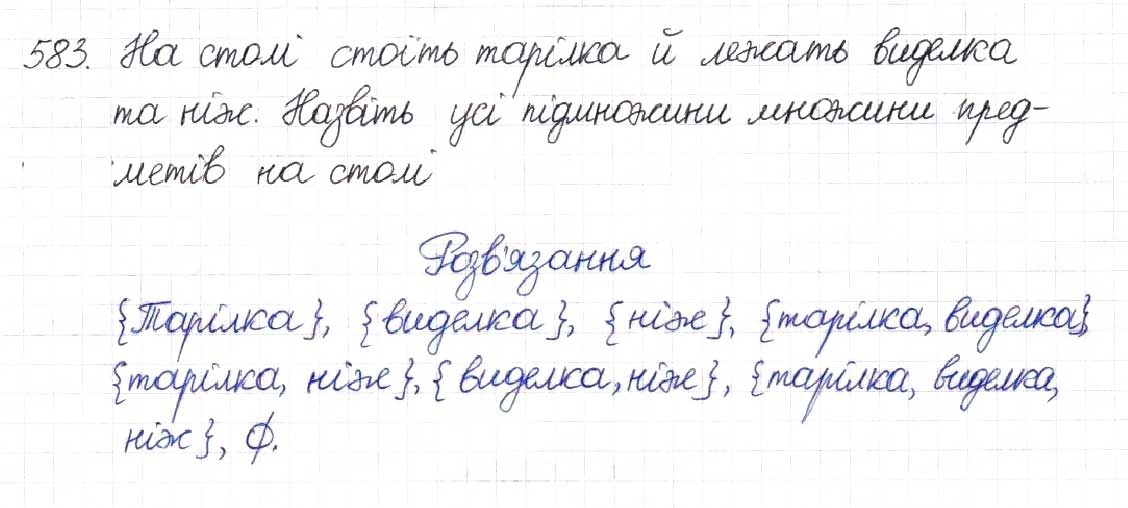 583. На столі стоїть тарілка й лежать виделка
та ніж. Назвіть усі підмножини множини пред-
метів на столі
Розв'язання
{Тарілка}, {виделка}, {ніж}, {тарілка, виделка},
{тарілка, ніж}, {виделка, ніж}, {тарілка, виделка,
ніж}, ∅.